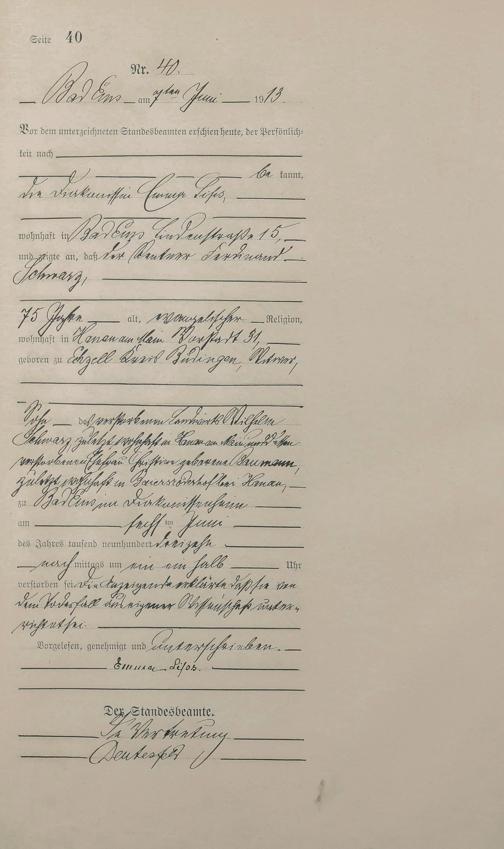 Seite 40
Nr. 40.
Bad Ems am 7ten Juni 1913.
Vor dem unterzeichneten Standesbeamten erschien heute, der Persönlich-
keit nach
be kannt,
die Diakonissin Emma
wohnhaft in Bad Ems Lindenstraße 15,
und zeigte an, daß der Rentner Ferdinand
Schwarz,
75 Jahre alt, evangelischer Religion,
wohnhaft in Hanau am Main Vorstadt 31,
geboren zu Kreis Büdingen, Witwer,
Sohn des verstorbenen Landwirts Wilhelm
Schwarz, zuletzt wohnhaft in Hanau am Main und dessen
verstorbenen Ehefrau Christine geborene Baumann,
zuletzt wohnhaft in bei Hanau,
zu Bad Ems im Diakonissenheim
am sechs ten Juni
des Jahres tausend neunhundert dreizehn
nach mittags um ein ein halb Uhr
verstorben sei. Die Anzeigende erklärte, daß sie von
dem Todesfall aus eigener Wissenschaft unter-
richtet sei.
Vorgelesen, genehmigt und unterschrieben.
Emma
Der Standesbeamte.
In Vertretung